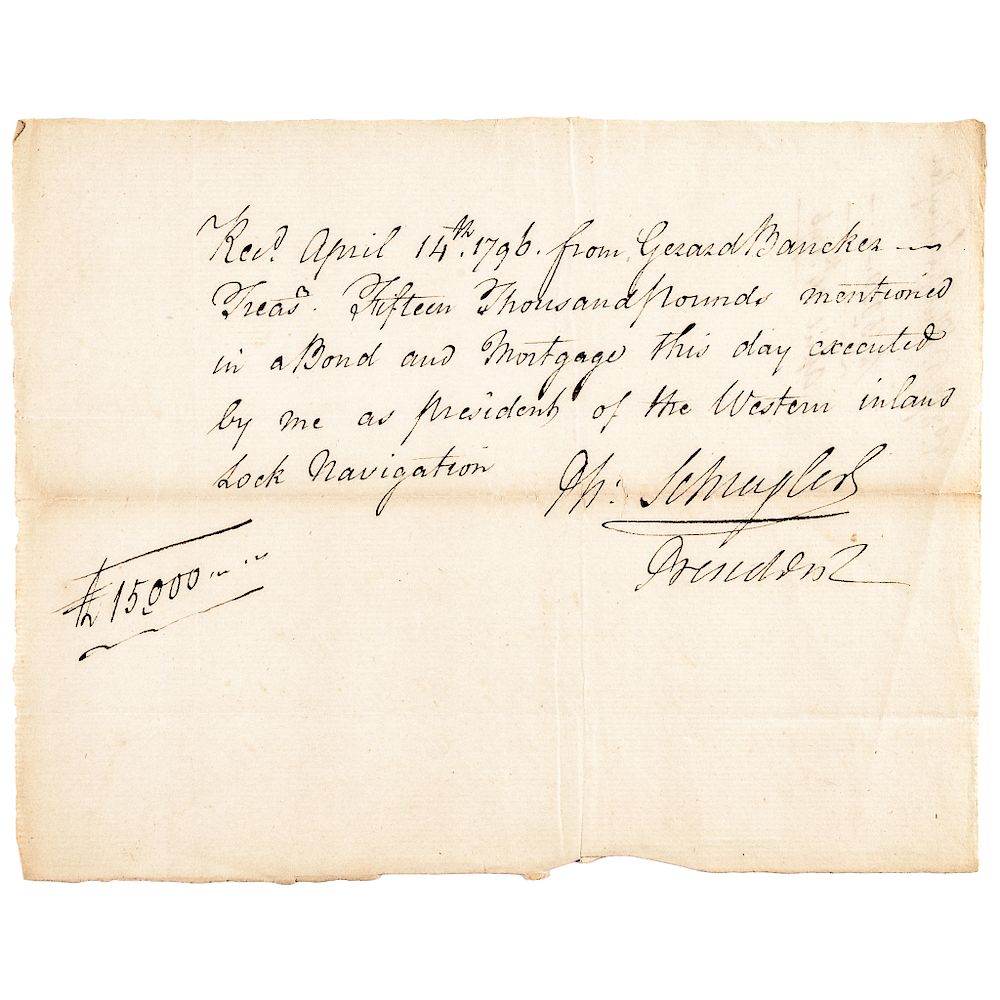 Recd. April 14th. 1796. from Gerard Bancker
Treasr. Fifteen Thousand pounds mentioned
in a Bond and Mortgage this day executed
by me as president of the Western inland
Lock Navigation
Ph: Schuyler
President
£15,000